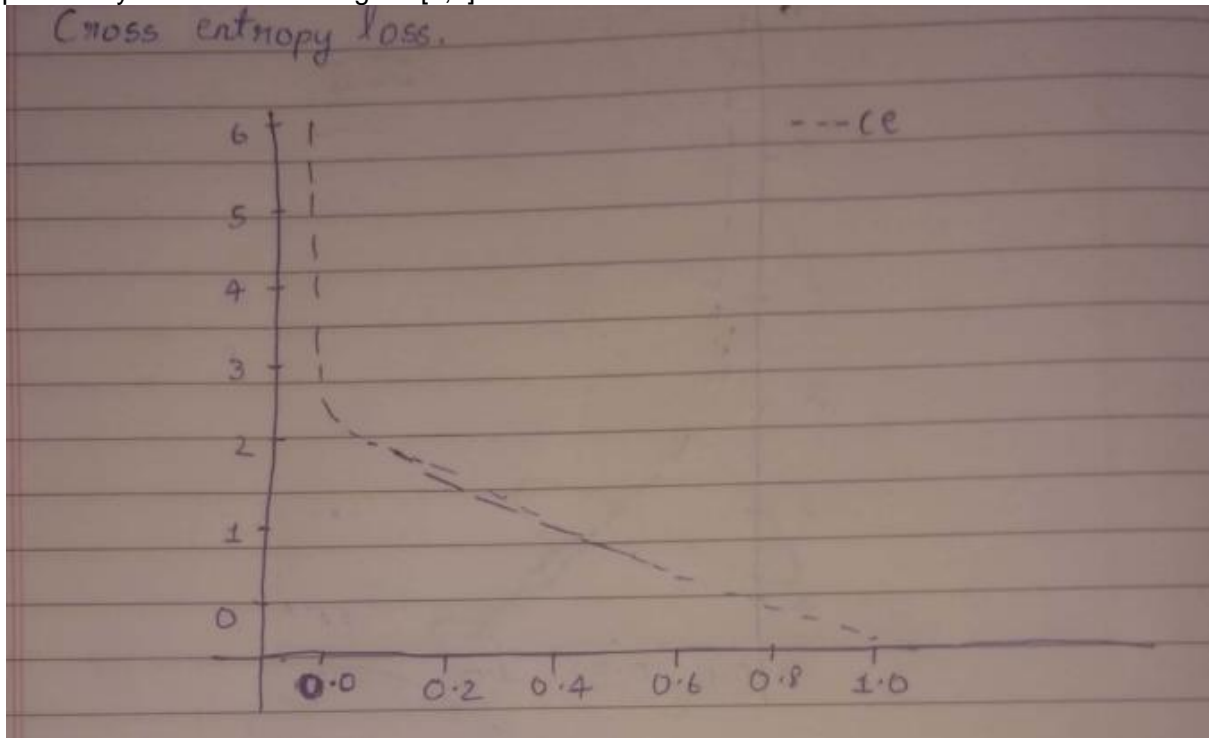 Cross entropy loss.
---ce
6
5
4
3
2
1
0
0.0 0.2 0.4 0.6 0.8 1.0